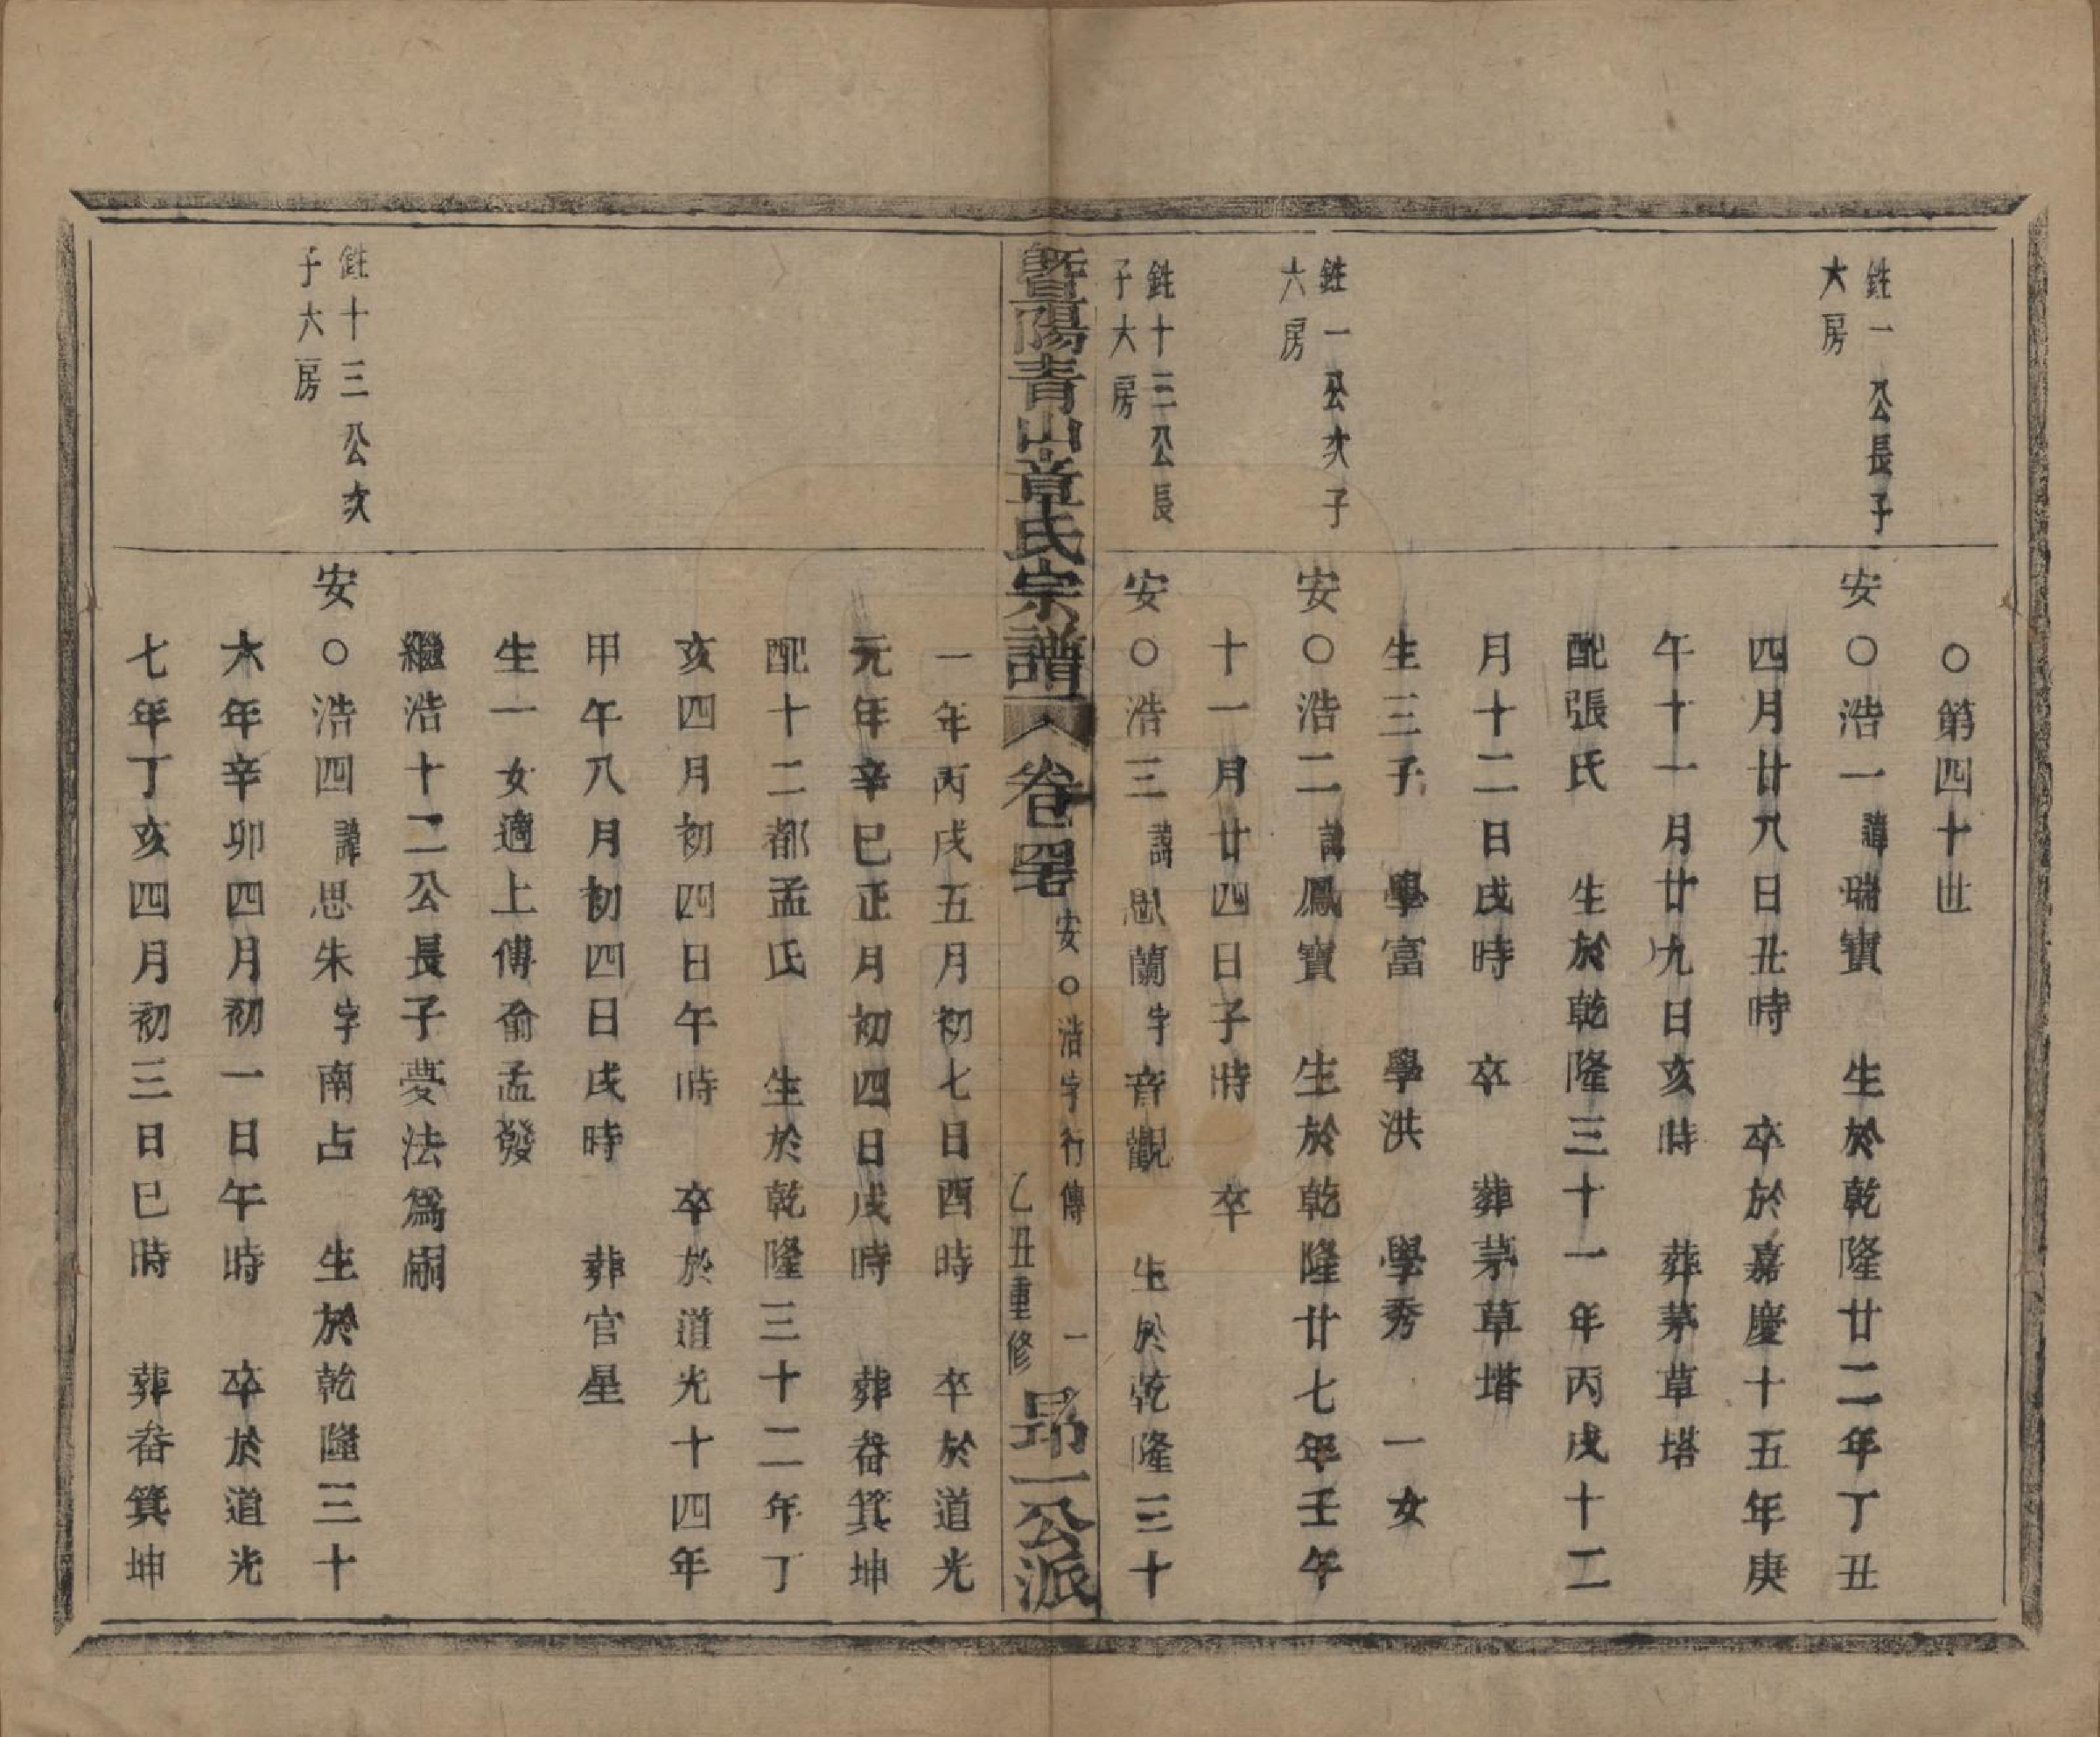 ○第四十世
銑一公長子
大房
安○浩一諱瑞寶　生於乾隆廿二年丁丑
四月廿八日丑時　卒於嘉慶十五年庚
午十一月廿九日亥時　葬茅草塔
配張氏　生於乾隆三十一年丙戌十二
月十二日戌時　卒　葬茅草塔
生三子　學富　學洪　學秀　一女
銑一公次子
六房
安○浩二諱鳳寶　生於乾隆廿七年壬午
十一月廿四日子時　卒
銑十三公長
子大房
安○浩三諱思蘭字音觀　生於乾隆三十
暨陽青山章氏宗譜
卷四　安○浩字行傳　一
乙丑重修
昂一公派
一年丙戌五月初七日酉時　卒於道光
元年辛巳正月初四日戌時　葬畚箕坤
配十二都孟氏　生於乾隆三十二年丁
亥四月初四日午時　卒於道光十四年
甲午八月初四日戌時　葬官星
生一女適上傅俞孟發
繼浩十二公長子夢法爲嗣
銑十三公次
子六房
安○浩四諱思朱字南占　生於乾隆三十
六年辛卯四月初一日午時　卒於道光
七年丁亥四月初三日巳時　葬畚箕坤